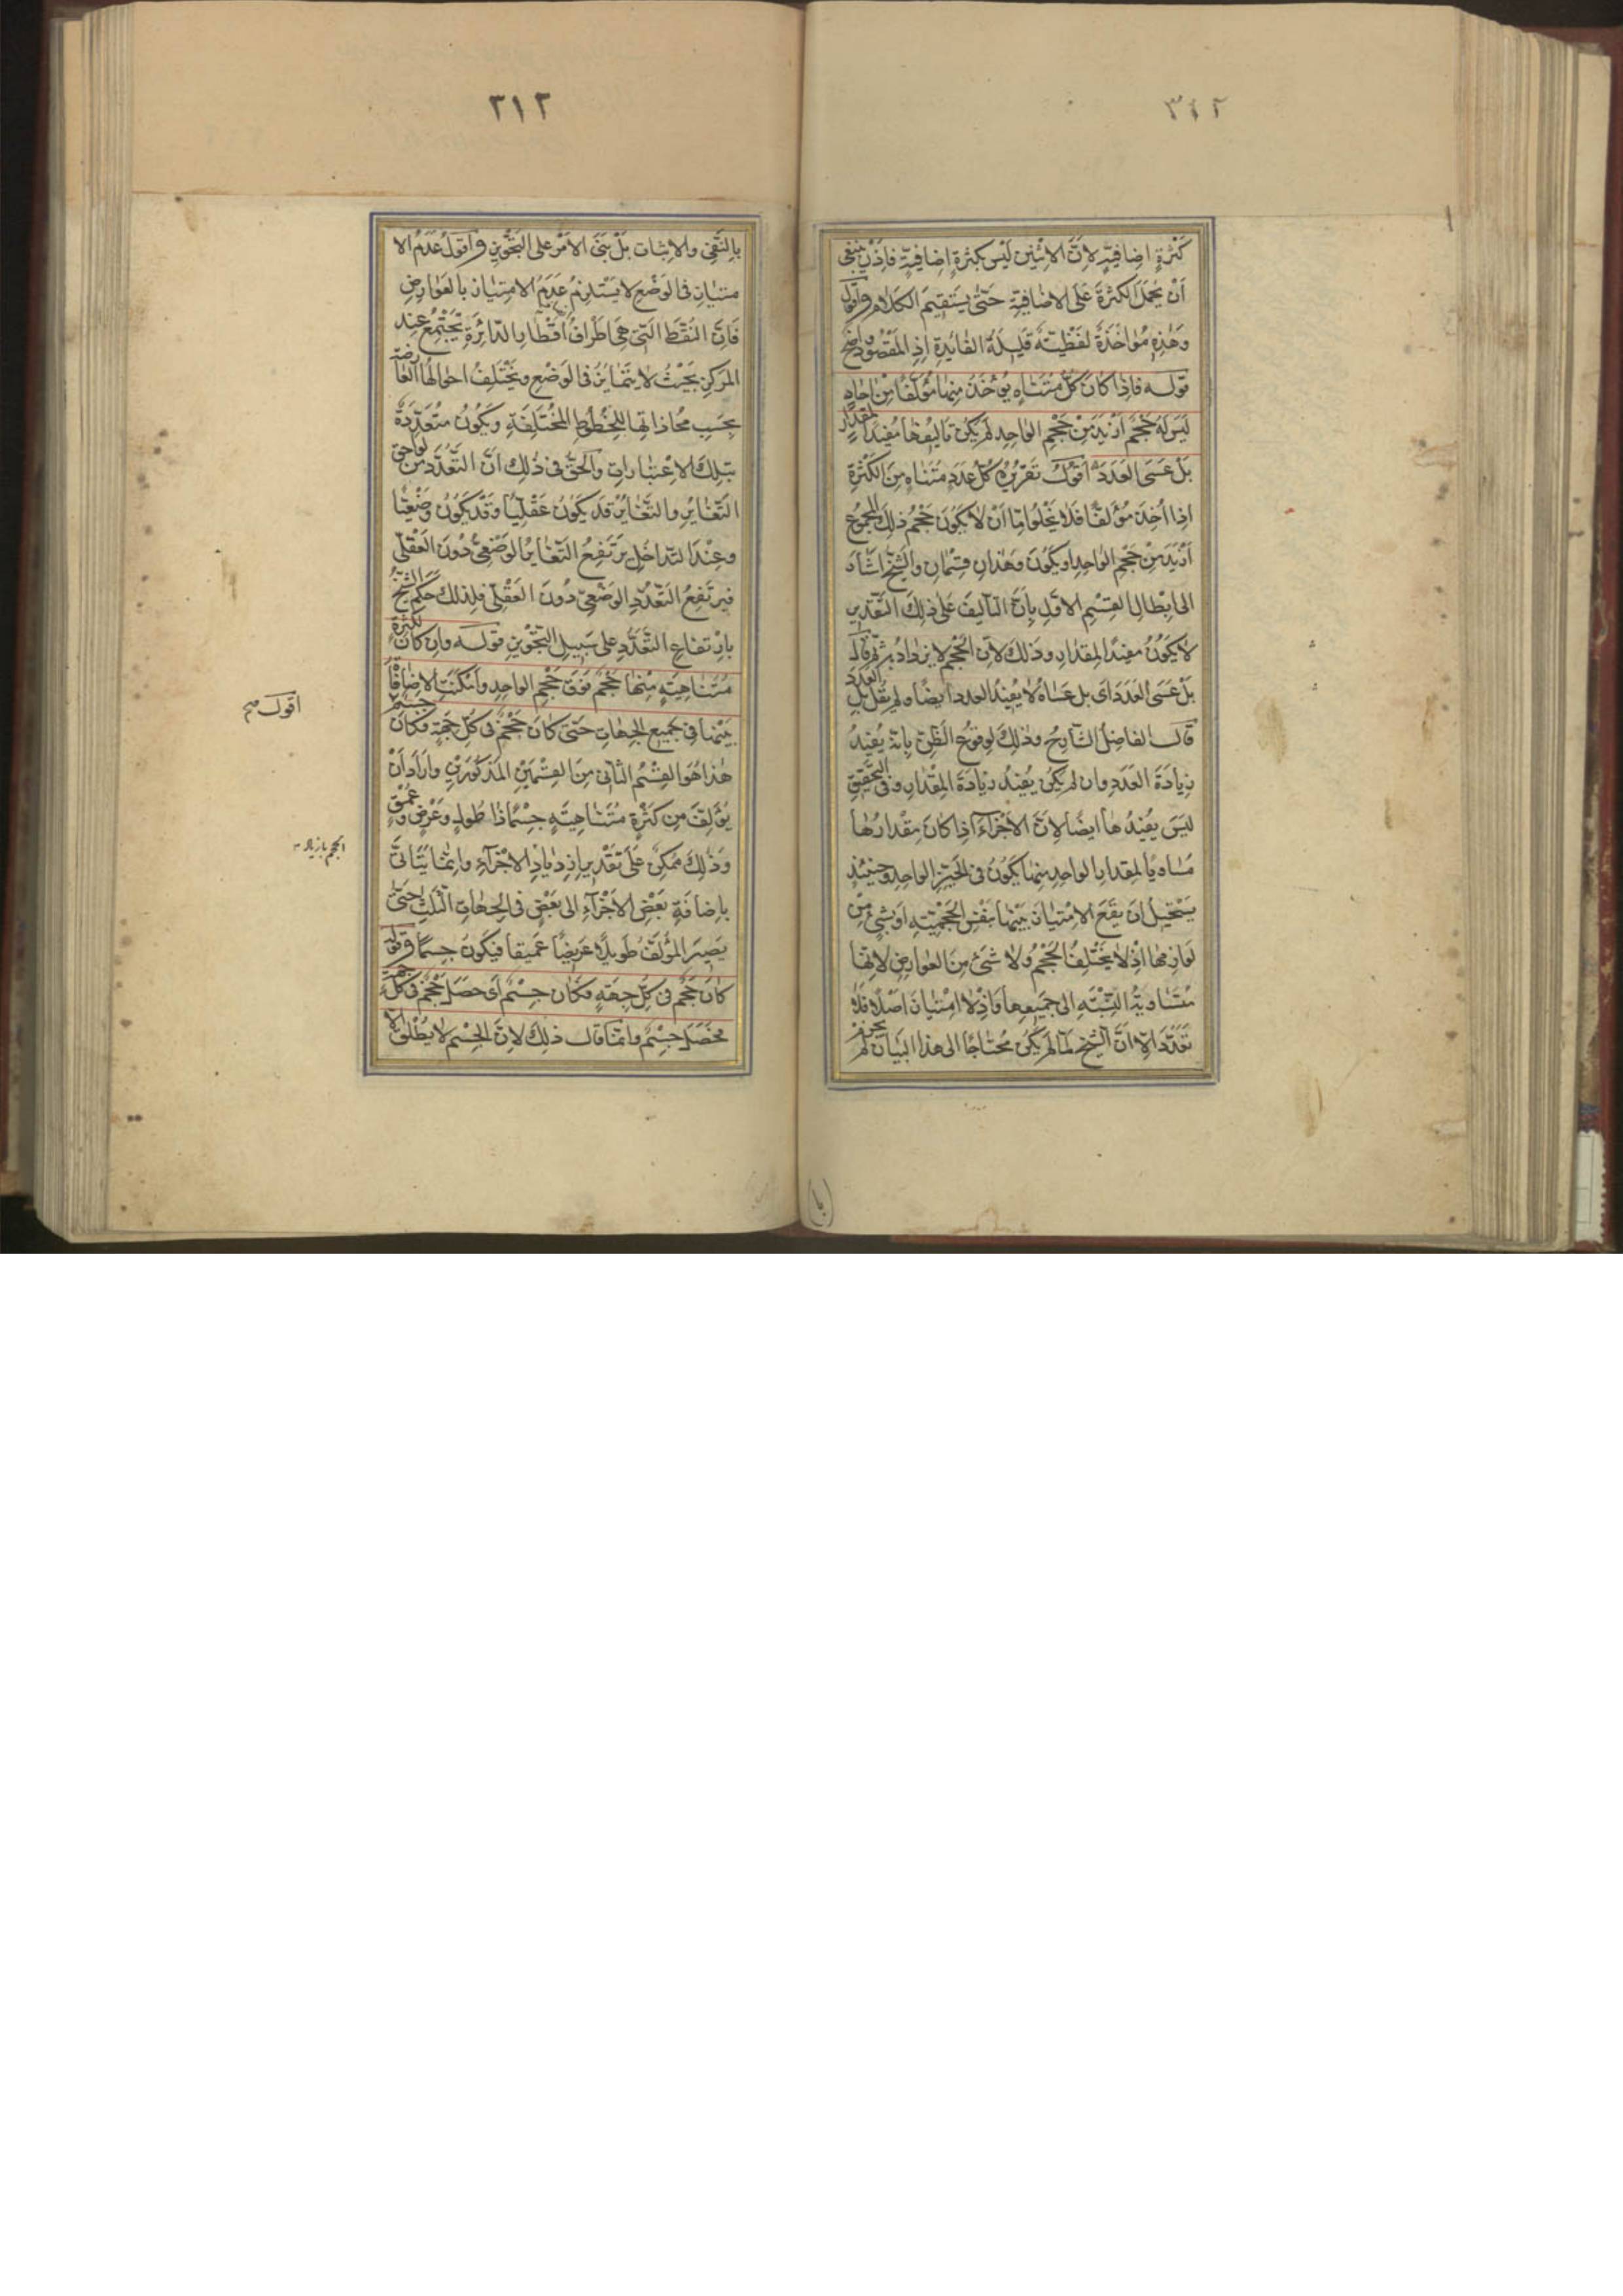 ٣١٢
كَثْرَةٍ اِضافِيَّةٍ لِاَنَّ الاِثْنَيْنِ لَيْسَ بِكَثْرَةٍ اِضافِيَّةٍ فَاِذَنْ يَنْبَغى
اَنْ يُحْمَلَ الكَثْرَةَ عَلَى الاِضافِيَّةِ حَتّى يَسْتَقِيمَ الكَلامُ واَقُولُ
وَهٰذِهِ مُؤاخَذَةٌ لَفْظِيَّةٌ قَلِيلَةُ الفائِدَةِ اِذِ المَقْصُودُ واضِحٌ
قولـه فاِذا كانَ كُلُّ مُتَناهٍ يُؤخَذُ مِنها مُؤلَّفًا مِنْ اٰحادٍ
لَيْسَ لَهُ حَجْمٌ اَزْيَدَ مِنْ حَجْمِ الواحِدِ لَمْ يَكُنْ تَاليفُها مُفِيدًا لِمِقْدارٍ
بَلْ عَسَى العَدَدَ اَقُولُ تَقْرِيرُهُ كُلُّ عَدَدٍ مُتَناهٍ مِنَ الكَثْرَةِ
اِذا اُخِذَ مُؤَلَّفًا فَلا يَخْلُو اِمّا اَنْ لا يَكُونَ حَجْمُ ذٰلِكَ المَجْمُوعِ
اَزْيَدَ مِنْ حَجْمِ الواحِدِ او يَكُونَ وَهٰذانِ قِسْمانِ والشَّيْخُ اَشارَ
الى اِبْطالِ القِسْمِ الاَوَّلِ بِاَنَّ التّاليفَ عَلى ذٰلِكَ التَّقْدِيرِ
لا يَكُونُ مفيدًا لِلمِقْدارِ وذٰلِكَ لِاَنَّ الحَجْمَ لا يَزْدادُ بِهِ ثُمَّ قالَ
بَلْ عَسَى العَدَدَ اى بل عَساهُ لا يُفِيدُ العدد ايضًا ولم يَقُلْ بل العَدَدَ
قالَ الفاضِلُ الشّارِحُ وذٰلِكَ لِوقوعِ الظَّنِّ بِاَنَّهُ يُفيدُ
زِيادَةَ العَدَدِ وان لم يكن يُفيدُ زيادَةَ المِقْدارِ وفى التَّحْقِيقِ
لَيْسَ يُفيدُها ايضًا لِاَنَّ الاَجْزاءَ اِذا كانَ مِقْدارُها
مُساوِيًا لِمِقدارِ الواحِدِ مِنها يَكُونُ فى الحَيِّزِ الواحِدِ وحِينَئِذٍ
يَسْتَحِيلُ اَنْ يَقَعَ الاِمْتِيازُ بَيْنَها بِنَفْسِ الحَجْمِيَّةِ اَوْ بِشَىْءٍ مِنْ
لَوازِمِها اِذْ لا يَخْتَلِفُ الحَجْمُ ولا شَىْءَ مِنَ العَوارِضِ لِاَنَّها
مُتَساوِيَةُ النِّسْبَةِ اِلى جَمِيعِها وَاِذْ لا امْتِيازَ اَصْلًا فَلا
تَعَدُّدَ اِلّا اَنَّ الشَّيْخَ لَمّا لَمْ يَكُنْ مُحْتاجًا الى هذا البَيانِ لَمْ يَجْزِمْ
٣١٢
بِالنَّفْىِ والاِثباتِ بَلْ بَنَى الاَمْرَ عَلى التَّجْويزِ واَقُولُ عَدَمُ الا
متيازِ فى الوَضْعِ لا يَسْتَلْزِمُ عَدَمَ الامتيازِ بالعَوارِضِ
فَاِنَّ النُّقَطَ الَّتى هِىَ اَطْرافُ اَقْطارِ الدّائِرَةِ يَجْتَمِعُ عِنْدَ
المَرْكَزِ بِحَيْثُ لا يَتَمايَزُ فى الوَضْعِ ويَخْتَلِفُ احوالُها العارِضَةُ
بِحَسَبِ مُحاذاتِها للخُطُوطِ المُخْتَلِفَةِ ويَكُونُ متعدّدَةً
بتِلكَ الاِعْتباراتِ والحَقُّ فى ذٰلِكَ اَنَّ التَّعَدُّدَ مِن لَواحِقِ
التَّغايُرِ والتَّغايُرُ قد يَكُونُ عَقْلِيًّا وقَدْ يَكُونُ وَضْعِيًّا
وعِنْدَ التَّداخُلِ يَرْتَفِعُ التَّغايُرُ الوَضْعِىُّ دُونَ العَقْلِىِّ
فيَرتَفِعُ التَّعَدُّدُ الوَضْعِىُّ دُونَ العَقْلِىِّ فلِذلِكَ حَكَمَ الشَّيْخُ
بِارْتفاعِ التَّعَدُّدِ على سَبيلِ التَّجْوِيزِ قولـه وان كانَ لِكَثْرَةٍ
مُتَناهِيَةٍ مِنها حَجْمٌ فَوْقَ حَجْمِ الواحِدِ واَمْكَنَتِ الاِضافاتُ
بَيْنَها فى جَميعِ الجِهاتِ حَتّى كانَ حَجْمٌ فى كُلِّ جِهَةٍ فكانَ جِسْمٌ
هٰذا هُوَ القِسْمُ الثّانى مِنَ القِسْمَيْنِ المَذكُورَيْنِ وارادَ اَنْ
يُؤَلِّفَ مِن كَثْرَةٍ مُتَناهِيَةٍ جِسْمًا ذا طُولٍ وعَرْضٍ وعُمْقٍ
وَذٰلِكَ مُمْكِنٌ عَلى تَقْدِيرِ اِزدِيادِ الاَجْزاءِ وانّما يَتَأتّى
بِاِضافَةِ بَعْضِ الاَجْزاءِ الى بَعْضٍ فى الجِهاتِ الثَّلثِ حَتّى
يَصِيرَ المُؤَلَّفُ طَويلًا عَريضًا عَميقًا فيكونُ جِسمًا قولـه
كانَ حَجْمٌ فى كُلِّ جِهَةٍ فكانَ جِسْمٌ اَى حَصَلَ حَجْمٌ فى كُلِّ جِهَةٍ
فحَصَلَ جِسْمٌ وانّما قالَ ذٰلِكَ لاِنَّ الجِسْمَ لا يُطْلَقُ الا
اقول صح